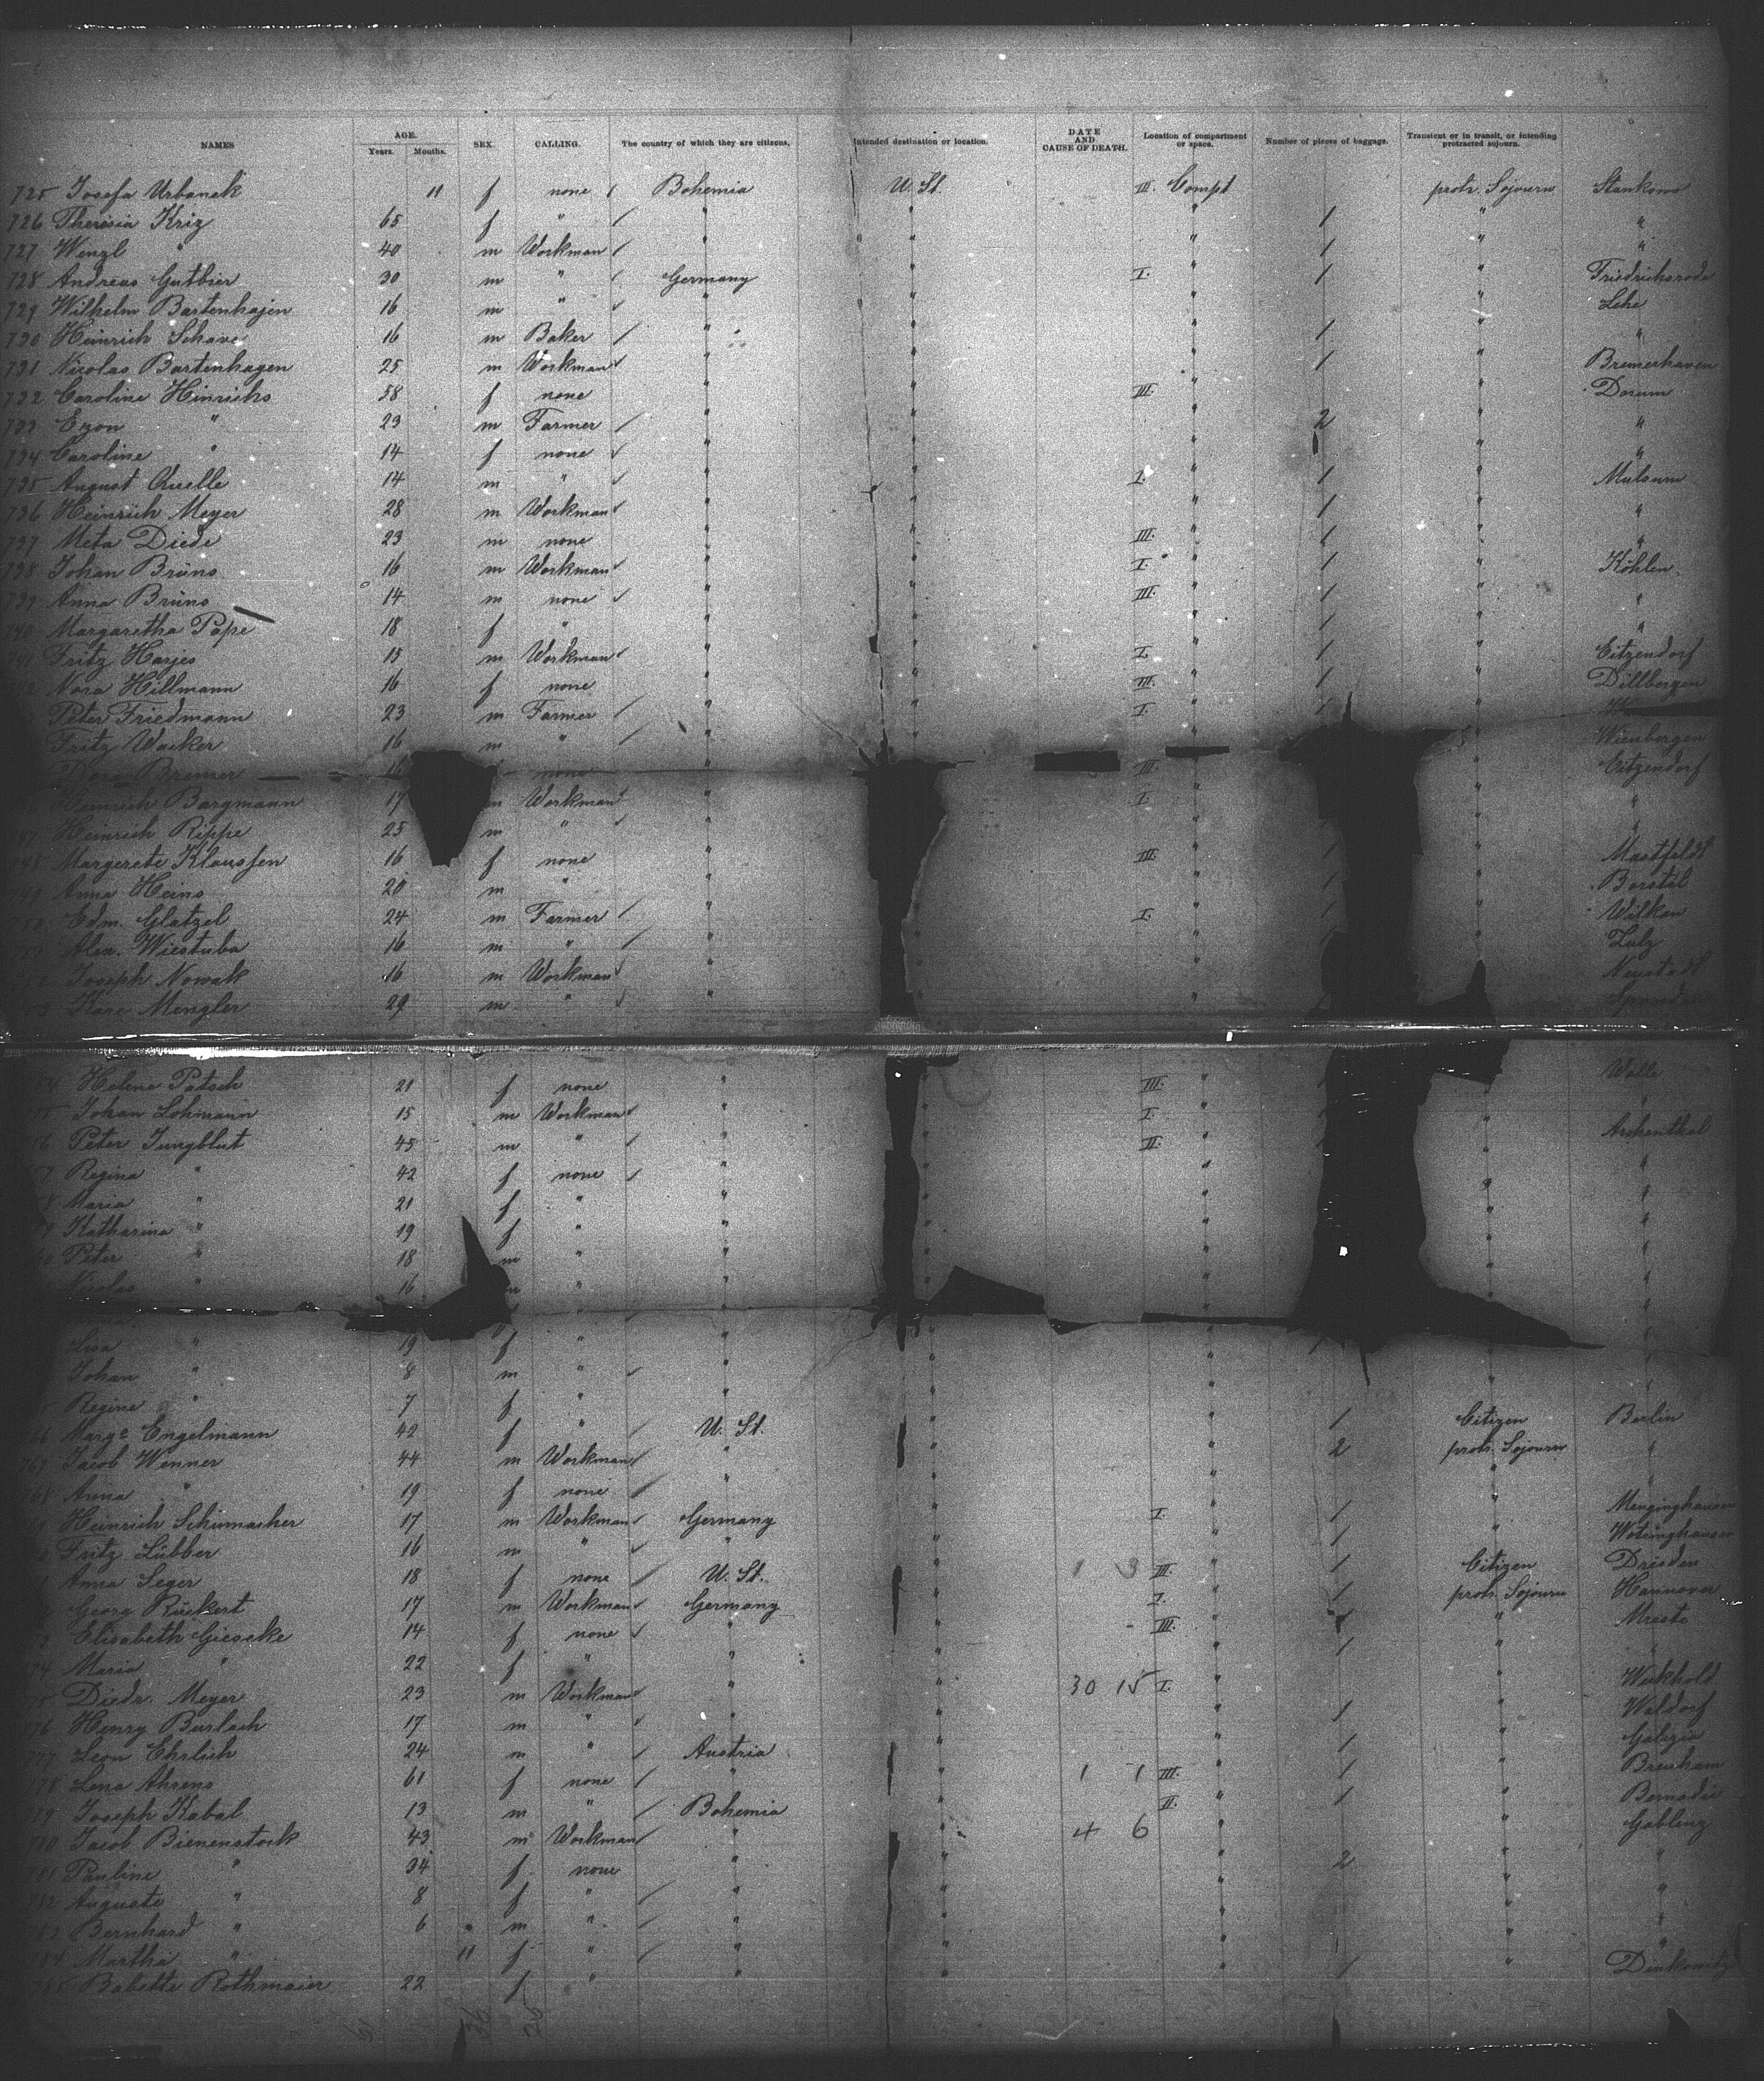 NAMES AGE. Years. Months. SEX. CALLING. The country of which they are citizens. Intended destination or location. DATE AND CAUSE OF DEATH. Location of compartment or space. Number of pieces of baggage. Transient or in transit, or intending protracted sojourn.
725 Josefa Urbanek 11 f none Bohemia U. St. III. Compt protr. Sojourn
726 Theresia Kriz 65 f " " " " 1 " "
727 Wenzl " 40 m Workman " " " 1 " "
728 Andreas Gutbier 30 m " Germany " I. " 1 " Friedrichsrode
729 Wilhelm Bartenhagen 16 m " " " " " Lehe
730 Heinrich Schave 16 m Baker " " " 1 " "
731 Nicolas Bartenhagen 25 m Workman " " " 1 " Bremerhaven
732 Carolina Hinrichs 58 f none " " III. " " Dorum
733 Egon " 23 m Farmer " " " 2 " "
734 Caroline " 14 f none " " " " "
735 August Quelle 14 m " " " I. " 1 " Mulsum
736 Heinrich Meyer 28 m Workman " " " 1 " "
737 Meta Diede 23 m none " " III. " 1 " "
738 Johan Brüns 16 m Workman " " I. " 1 " Köhlen
739 Anna Brüns 14 m none " " III. " 1 " "
740 Margaretha Pape 18 f " " " " 1 " "
741 Fritz Harjes 15 m Workman " " I. " 1 " Eitzendorf
42 Nora Hillmann 16 f none " " III. " 1 " Dillbergen
Peter Friedmann 23 m Farmer " " I. " 1 "
Fritz Wacker 16 m " " " " Wienbergen
Dora Bremer 16 none " III. " " Eitzendorf
Heinrich Bargmann 17 m Workman " I. " " "
747 Heinrich Rippe 25 m " " " " "
748 Margerete Klaussen 16 f none " III. " 1 "
749 Anna Heins 20 m " " " 1 " Borstel
750 Edm. Glatzel 24 m Farmer " " I. " 1 " Wilkau
Alex. Wiestuba 16 m " " " " " Zulz
Joseph Nowak 16 m Workman " " " " Neustadt
Mengler 29 m " " "
54 Helene Patsch 21 f none " " III. " Walle
Johan Lohmann 15 m Workman " " I. " " "
56 Peter Jungblut 45 m " " " II. " "
Regina " 42 f none " " " " "
8 Maria " 21 f " " " " " "
9 Katharina " 19 f " " " " " "
Peter " 18 m " " " " " "
Nicolas " 16 " " " " " "
Lisa " 19 f " " " " " "
Johan " 8 m " " " " " "
Regine " 7 f " " " " " "
66 Margt Engelmann 42 f " U. St. " " 1 Citizen Berlin
767 Jacob Wenner 44 m Workman " " " 2 protr. Sojourn "
768 Anna " 19 f none " " " " "
Heinrich Schumacher 17 m Workman Germany " I. " 1 " Menginghausen
Fritz Lübber 16 m " " " " 1 "
Anna Seger 18 f none U. St. " 1 3 III. " 1 Citizen Dresden
Georg Rückert 17 m Workman Germany " I. " 1 protr. Sojourn Hannover
73 Elisabeth Giesecke 14 f none " " III. " 1 "
74 Maria " 22 f " " " " 1 " "
75 Diedr. Meyer 23 m Workman " " 30 15 I. " "
776 Henry Burlach 17 m " " " " 1 " Waldorf
777 Leon Ehrlich 24 m " Austria " " 1 " Galizia
778 Lena Ahrens 61 f none " " 1 1 III. " 1 "
779 Joseph Kabal 13 m " Bohemia " II. " 1 "
780 Jacob Bienenstock 43 m Workman " " 4 6 " " Gablenz
781 Pauline " 34 f none " " " 2 " "
782 Auguste " 8 f " " " " " "
783 Bernhard " 6 m " " " " " "
784 Martha " 11 f " " " " " "
785 Babette Rothmaier 22 f " " " " 1 "